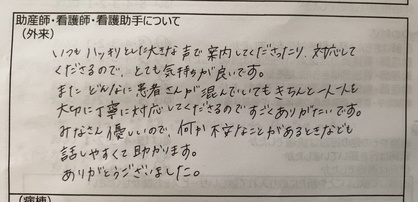 助産師・看護師・看護助手について
(外来)
いつもハッキリとした大きな声で案内してくださったり、対応して
くださるので、とても気持ちが良いです。
また どんなに患者さんが混んでいてもきちんと一人一人を
大切に丁寧に対応してくださるのですごくありがたいです。
みなさん優しいので、何か不安なことがあるときなども
話しやすくて助かります。
ありがとうございました。
(病棟)